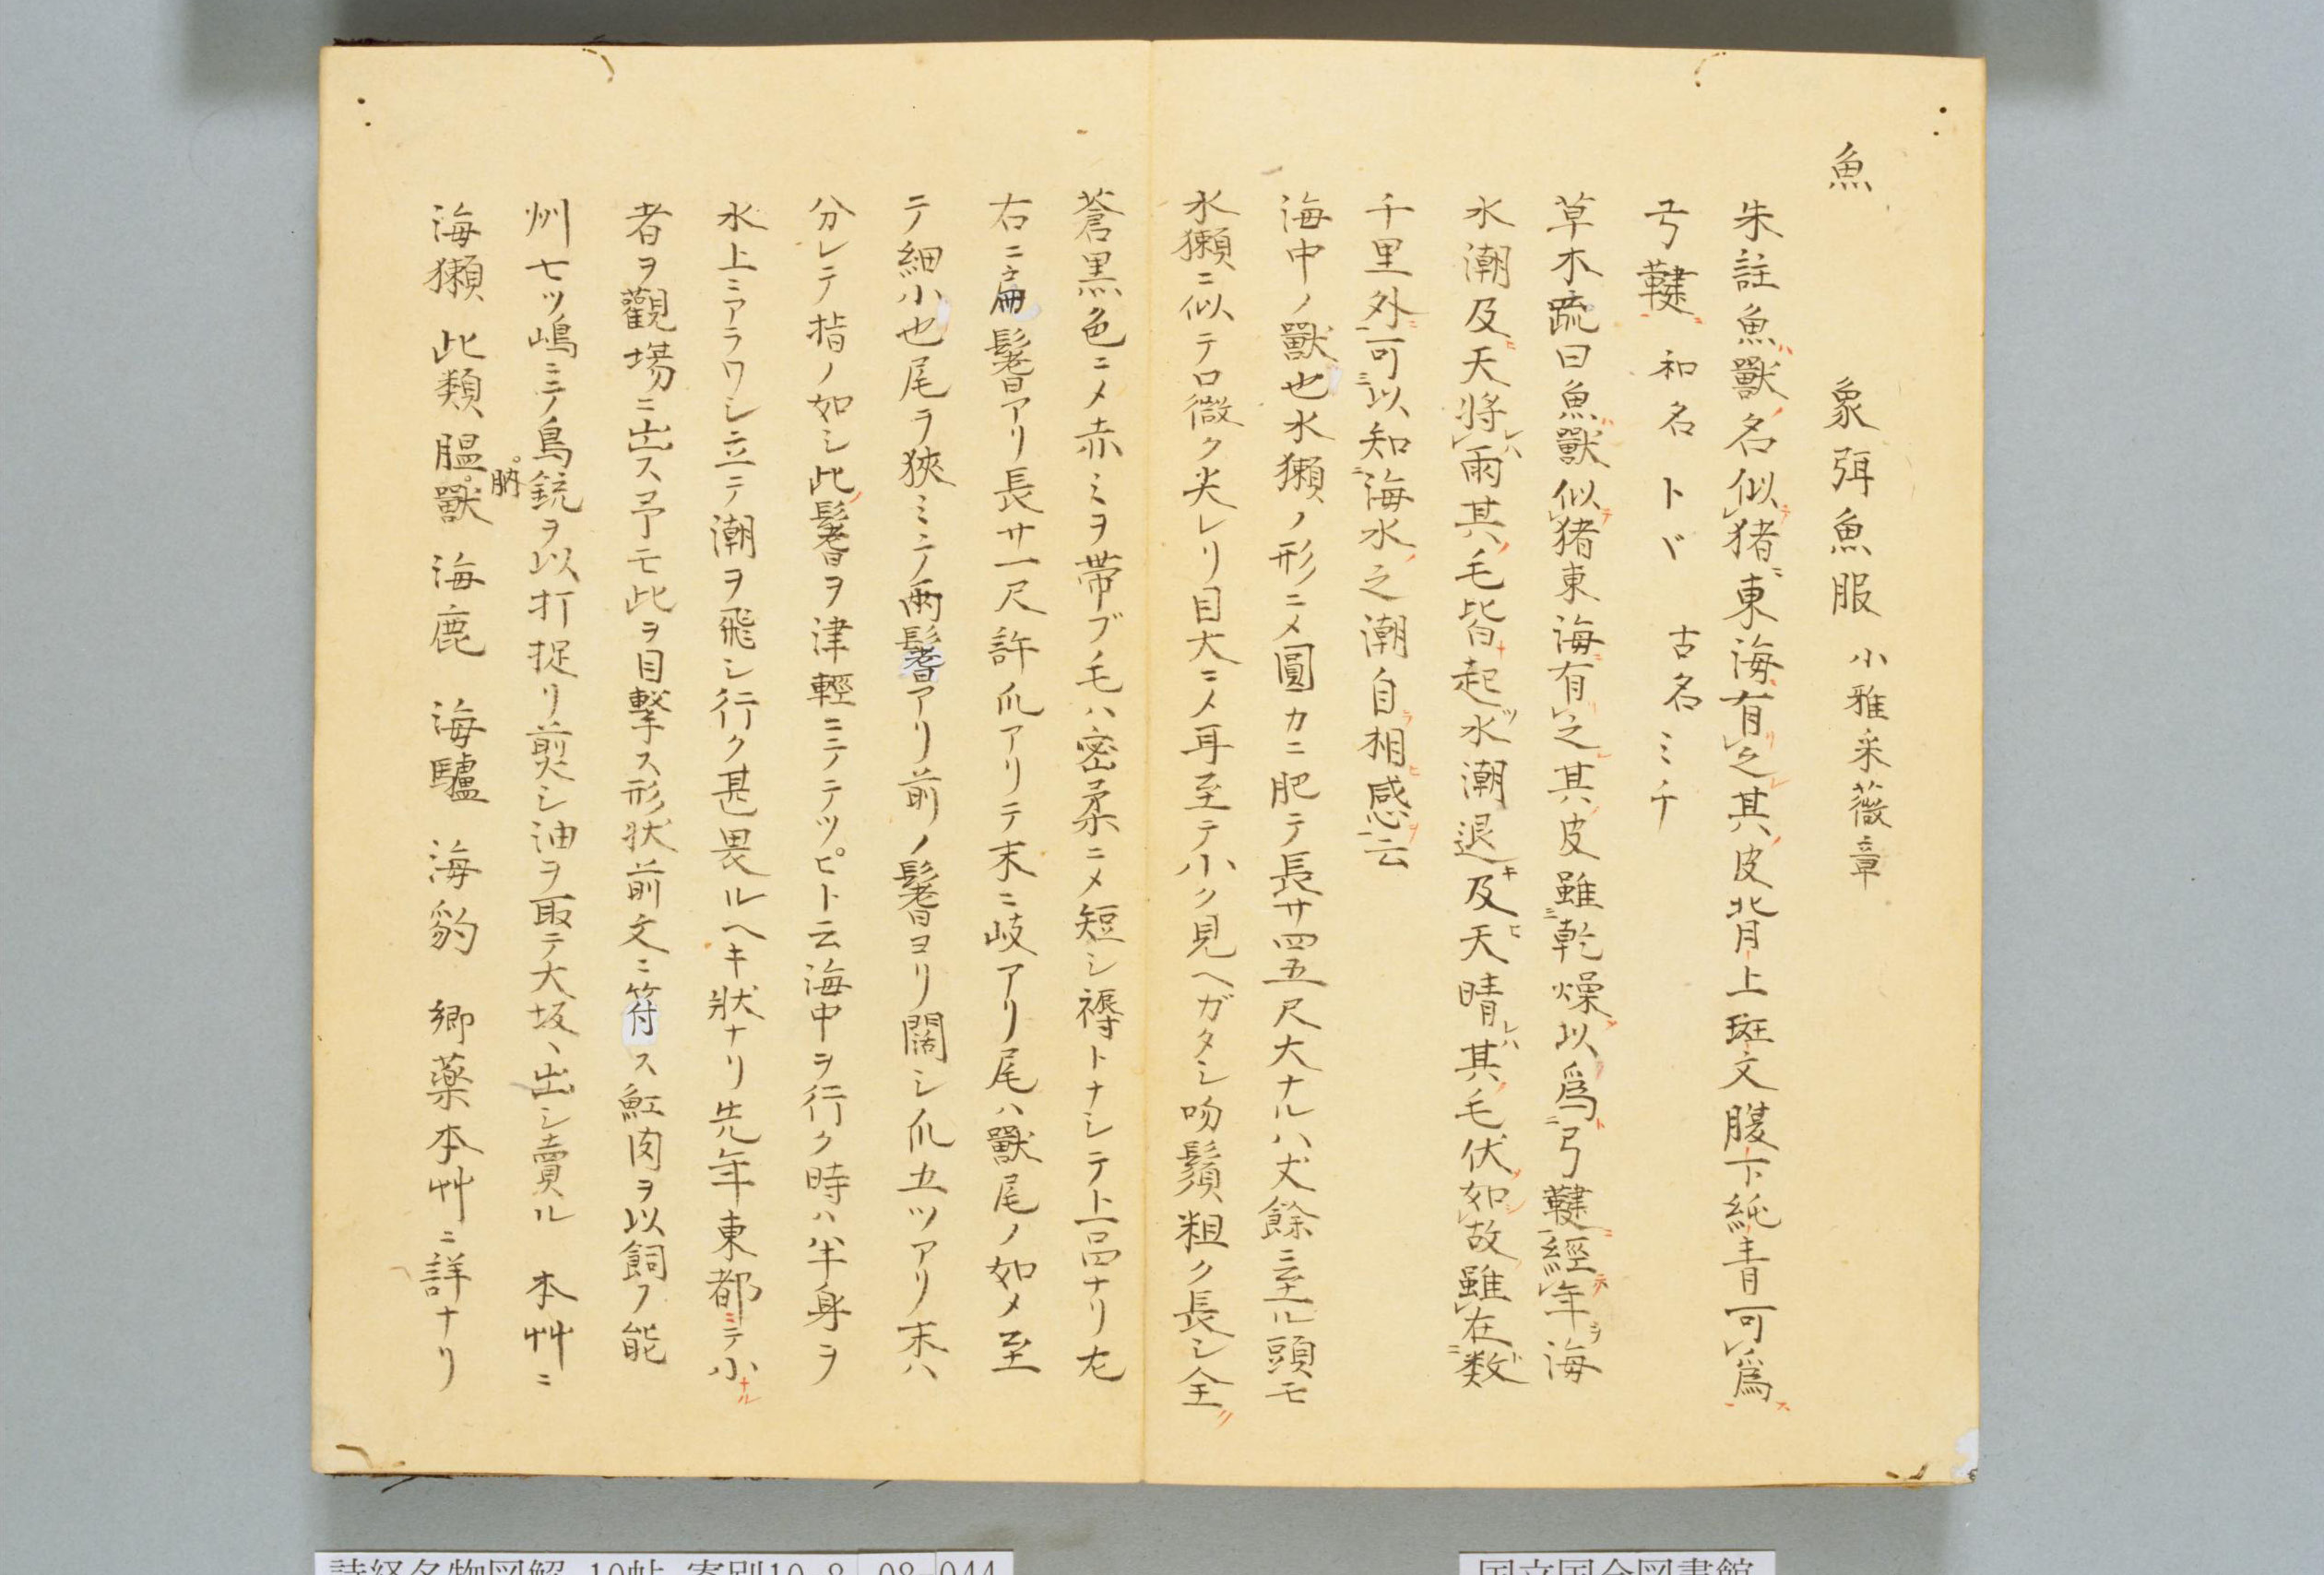 魚　　象弭魚服 小雅采薇章
朱註魚獸名似猪東海有之其皮背上斑文腹下純青可為
弓鞬 和名トヾ 古名ミチ
草木疏曰魚獸似猪東海有之其皮雖乾燥以為弓鞬經年海
水潮及天將雨其毛皆起水潮退及天晴其毛伏如故雖在数
千里外可以知海水之潮自相感云
海中ノ獸也水獺ノ形ニメ圓カニ肥テ長サ四五尺大ナルハ丈餘ニ至ル頭モ
水獺ニ似テ口微ク尖レリ目大ニメ耳至テ小ク見ヘガタシ吻鬚粗ク長シ全
蒼黒色ニメ赤ミヲ帯ブ毛ハ密柔ニメ短シ褥トナシテ上品ナリ左
右ニ扁鬐アリ長サ一尺許爪アリテ末ニ岐アリ尾ハ獸尾ノ如メ至
テ細小也尾ヲ狹ミテ兩鬐アリ前ノ鬐ヨリ闊シ爪五ツアリ末ハ
分レテ指ノ如シ此鬐ヲ津輕ニテテツピト云海中ヲ行ク時ハ半身ヲ
水上ニアラワシ立テ潮ヲ飛シ行ク甚畏ルヘキ狀ナリ先年東都ニテ小ナル
者ヲ觀場ニ出ス予モ此ヲ目撃ス形狀前文ニ符ス魟肉ヲ以飼フ能
州七ツ嶋ニテ鳥銃ヲ以打捉リ煎シ油ヲ取テ大坂ヘ出シ賣ル 本艸ニ
海獺 此類膃肭獸 海鹿 海驢 海豹 郷薬本艸ニ詳ナリ
詩経名物図解 10帖 寄別10-8 08 044
国立国会図書館